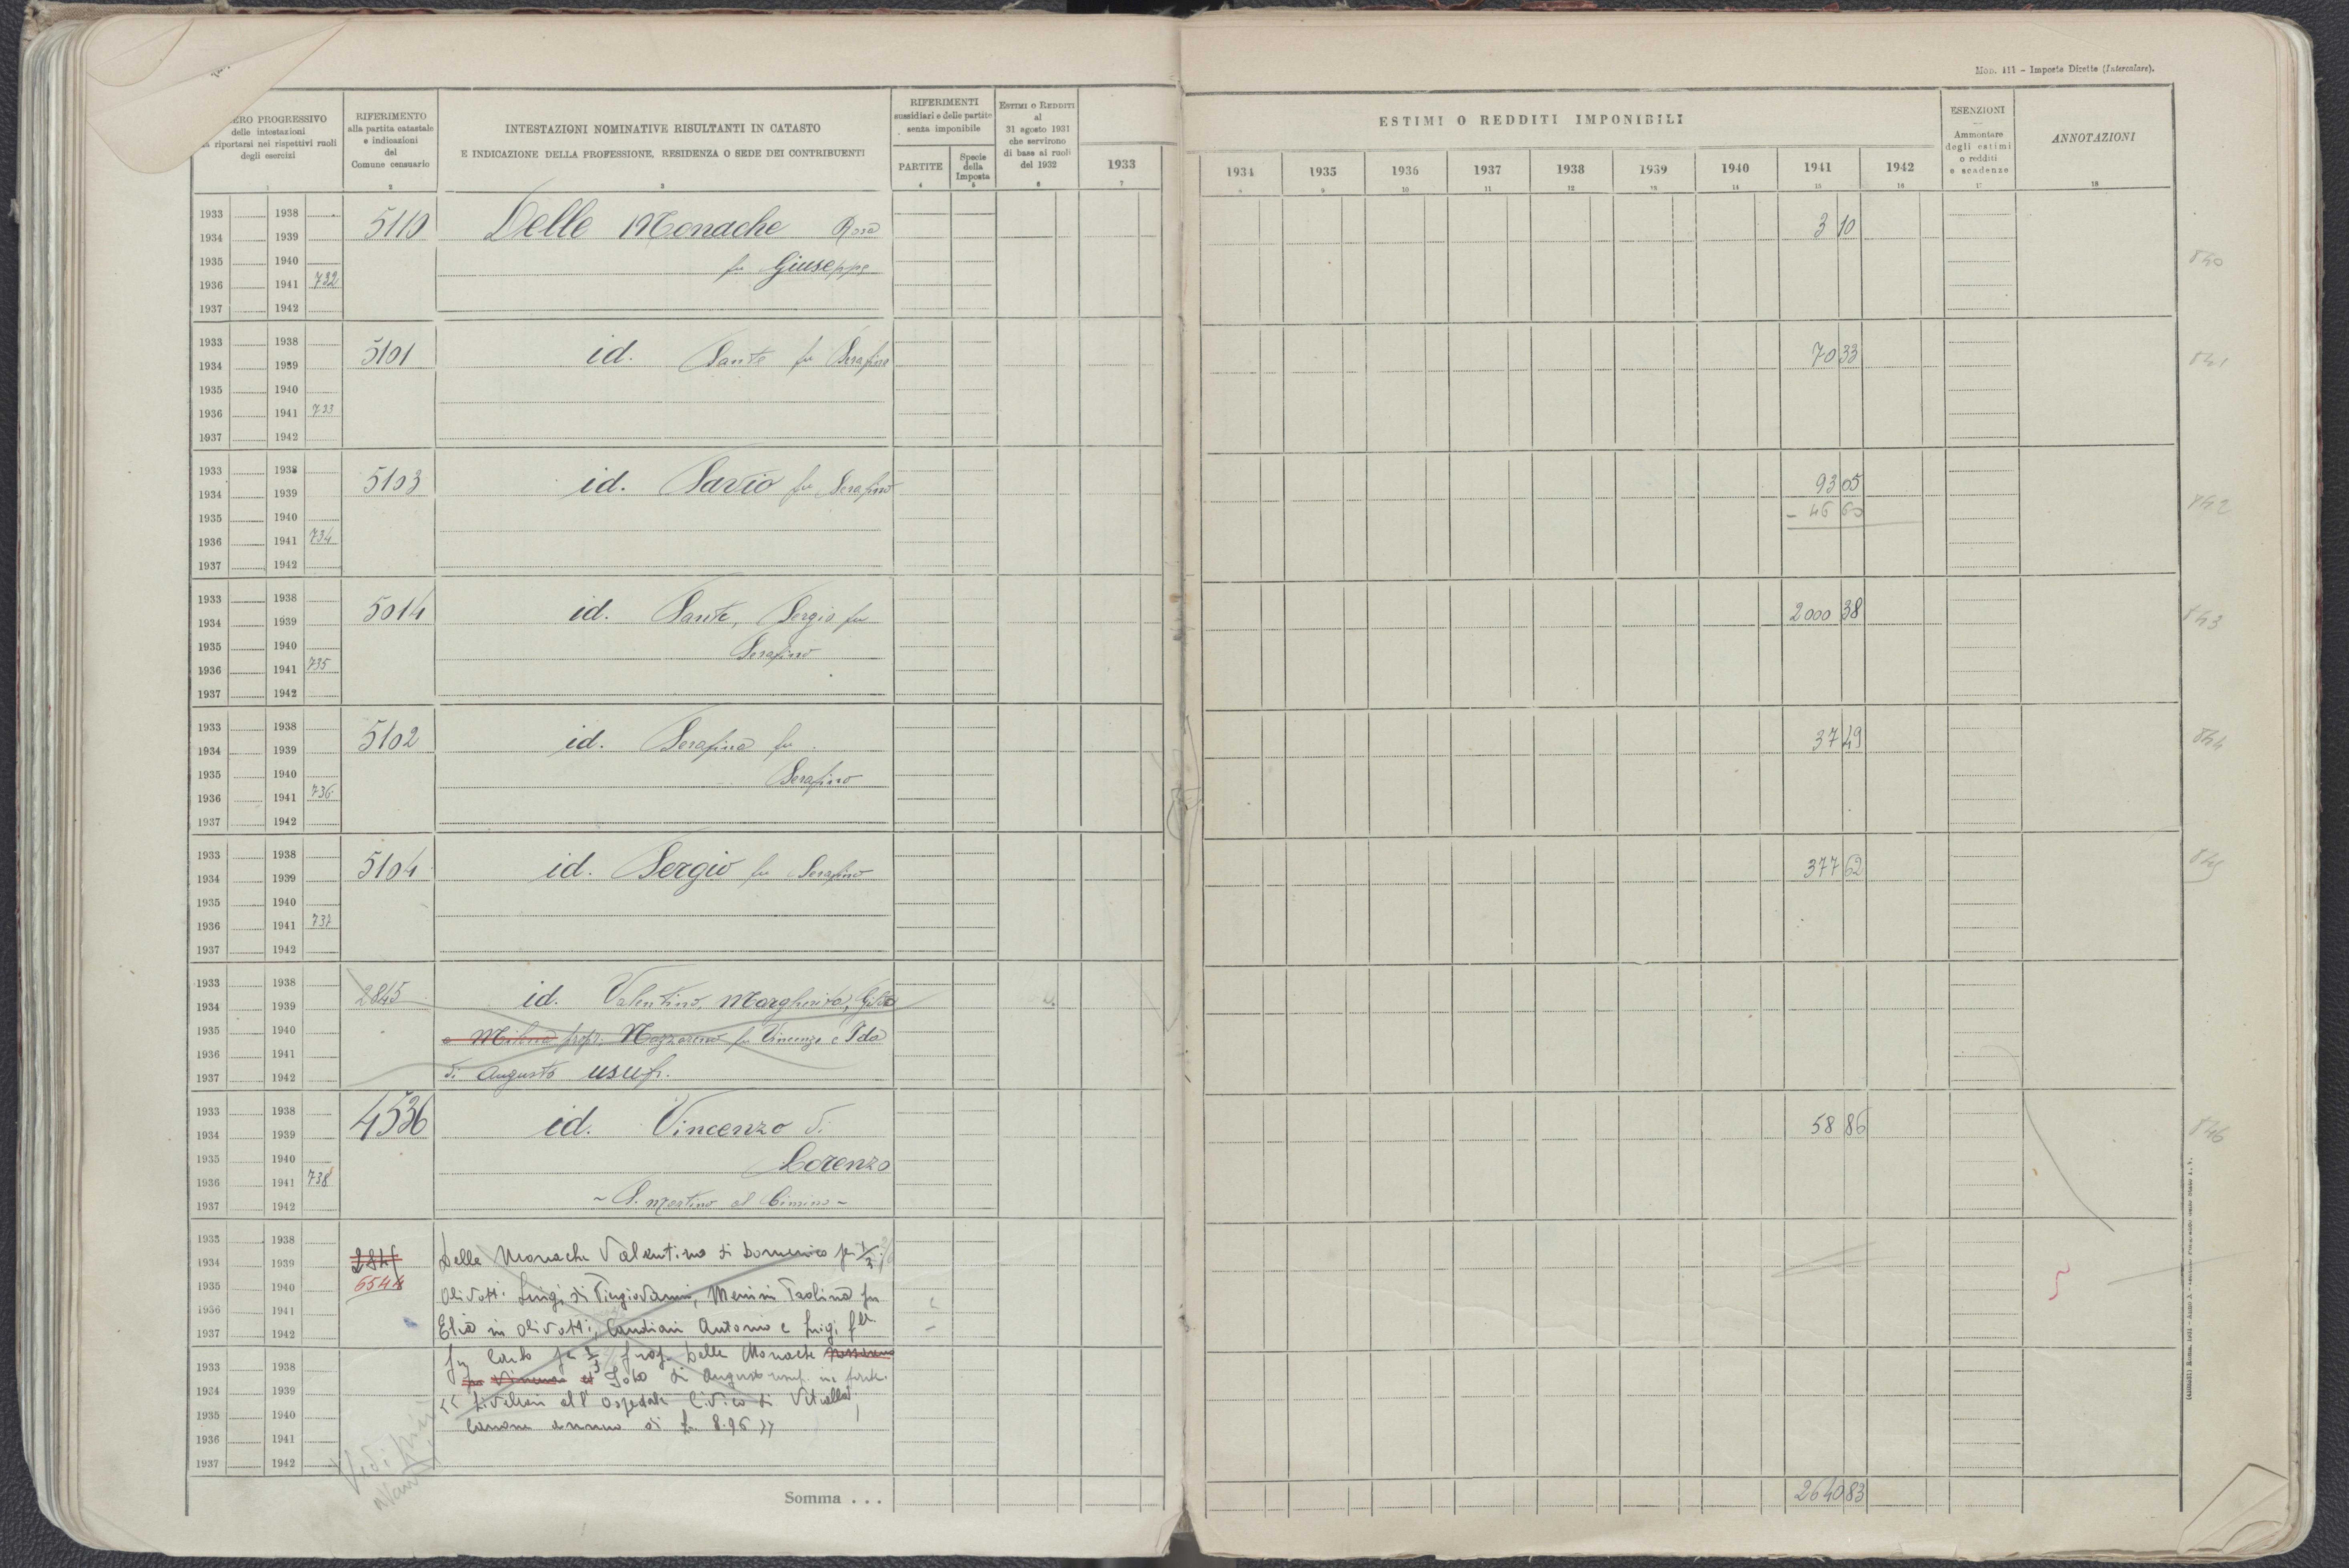 Mod. 111 – Imposte Dirette (Intercalare).
ERO PROGRESSIVO
delle intestazioni
a riportarsi nei rispettivi ruoli
degli esercizi
1
RIFERIMENTO
alla partita catastale
e indicazioni
del
Comune censuario
2
INTESTAZIONI NOMINATIVE RISULTANTI IN CATASTO
E INDICAZIONE DELLA PROFESSIONE, RESIDENZA O SEDE DEI CONTRIBUENTI
3
RIFERIMENTI
sussidiari e delle partite
senza imponibile
PARTITE
4
Specie
della
Imposta
5
ESTIMI O REDDITI
al
31 agosto 1931
che servirono
di base ai ruoli
del 1932
6
ESTIMI O REDDITI IMPONIBILI
1933 1934 1935 1936 1937 1938 1939 1940 1941 1942
7 8 9 10 11 12 13 14 15 16
ESENZIONI
Ammontare
degli estimi
o redditi
e scadenze
17
ANNOTAZIONI
18
1933 1938
1934 1939
1935 1940
1936 1941 732
1937 1942
5110 Delle Monache Rosa 3 10
fu Giuseppe
840
1933 1938
1934 1939
1935 1940
1936 1941 733
1937 1942
5101 id. Sante fu Serafino 70 33
841
1933 1938
1934 1939
1935 1940
1936 1941 734
1937 1942
5103 id. Savio fu Serafino 93 05
– 46 60
842
1933 1938
1934 1939
1935 1940
1936 1941 735
1937 1942
5014 id. Sante, Sergio fu 2000 38
Serafino
843
1933 1938
1934 1939
1935 1940
1936 1941 736
1937 1942
5102 id. Serafina fu 37 49
Serafino
844
1933 1938
1934 1939
1935 1940
1936 1941 737
1937 1942
5104 id. Sergio fu Serafino 377 62
845
1933 1938
1934 1939
1935 1940
1936 1941
1937 1942
2845 id. Valentino, Margherita, Gilda
e Milena propr. Nazzareno fu Vincenzo e Ida
di Augusto usuf.
1933 1938
1934 1939
1935 1940
1936 1941 738
1937 1942
4536 id. Vincenzo di 58 86
Lorenzo
~ S. Martino al Cimino ~
846
1933 1938
1934 1939
1935 1940
1936 1941
1937 1942
2845
6544
Delle Monache Valentino di Domenico per 1/3;
Olivotti Luigi di Piergiovanni, Menini Paolina fu
Elia in Olivotti, Candiani Antonio e Luigi flli
1933 1938
1934 1939
1935 1940
1936 1941
1937 1942
fu Carlo per 2/3 prop. Delle Monache
fu Vincenzo ed Ida di Augusto usuf. in parte.
<< Livellari all' Ospedale Civico di Vitralla,
canone annuo di L. 8.96 >>
Vedi più
avanti
Somma . . . 2640 83